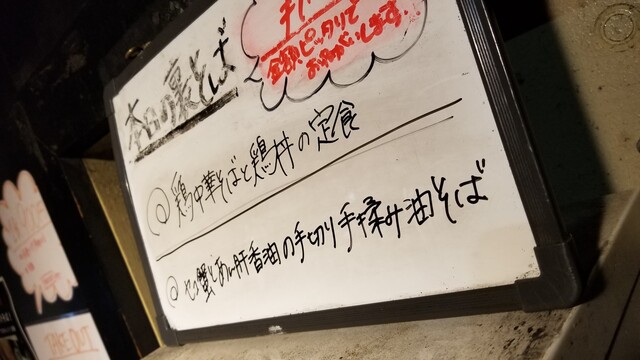 本日の裏そば
金額ピッタリで
おねがいします。
◎ 鶏中華そばと鶏丼の定食
◎ 七蟹とあん肝香油の手切り手揉み油そば
TAKE OUT